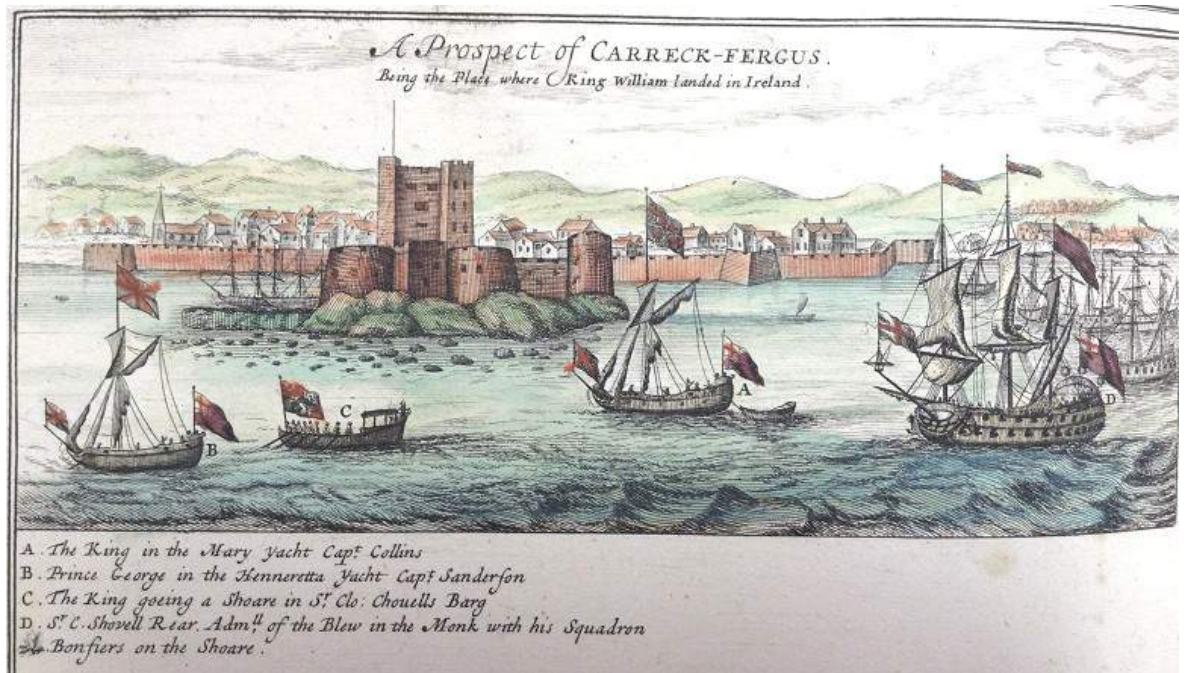 A Prospect of CARRECK-FERGUS.
Being the Place where King William landed in Ireland.
C
A
B
D
A. The King in the Mary Yacht Capt. Collins
B. Prince George in the Henneretta Yacht Capt. Sanderson
C. The King goeing a Shoare in Sr. Clo: Chouells Barg
D. Sr. C. Shovell Rear. Admll. of the Blew in the Monk with his Squadron
Bonfiers on the Shoare.